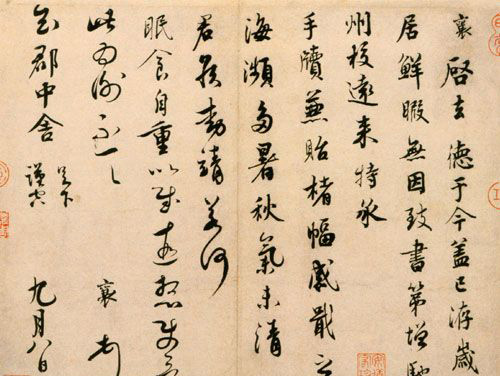 襄 啓去德于今蓋已洊歲
居鮮暇無因致書第增馳
州校遠來特承
手牘兼貽楮幅感戢之
海瀕多暑秋氣未清
君侯動靖若何
眠食自重以慰遠想使
此為謝不一一 襄 頓
知郡中舍足下 謹空 九月八日